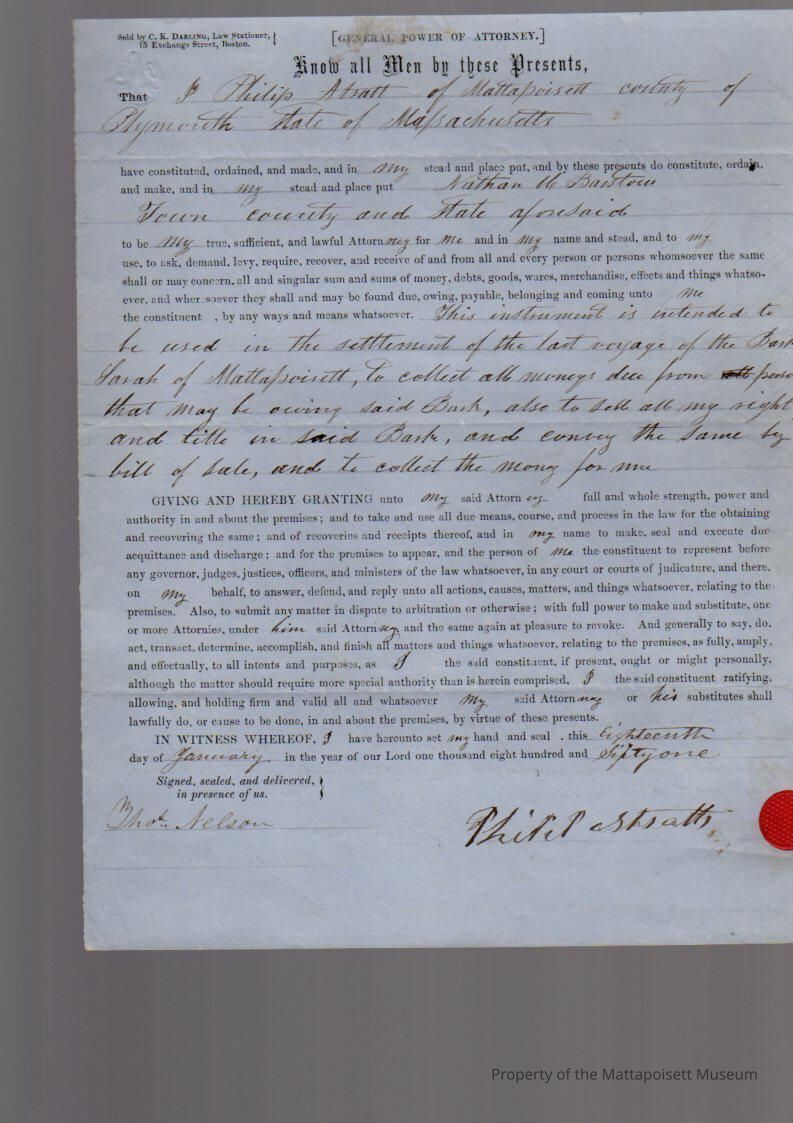 Sold by C. K. DARLING, Law Stationer,
15 Exchange Street, Boston.
[GENERAL POWER OF ATTORNEY.]
Know all Men by these Presents,
That I Philip Atsatt of Mattapoisett county of
Plymouth State of Massachusetts
have constituted, ordained, and made, and in my stead and place put, and by these presents do constitute, ordain,
and make, and in my stead and place put Nathan H Barstow
Town county and State aforesaid
to be my true, sufficient, and lawful Attorney for me and in my name and stead, and to my
use, to ask, demand, levy, require, recover, and receive of and from all and every person or persons whomsoever the same
shall or may concern, all and singular sum and sums of money, debts, goods, wares, merchandise, effects and things whatso-
ever, and wheresoever they shall and may be found due, owing, payable, belonging and coming unto me
the constituent , by any ways and means whatsoever. This instrument is intended to
be used in the settlement of the last voyage of the Bark
Sarah of Mattapoisett, to collect all moneys due from all
that may be owing said Bark, also to sell all my right
and title in said Bark, and convey the same by
bill of sale, and to collect the money for me
GIVING AND HEREBY GRANTING unto my said Attorn ey full and whole strength, power and
authority in and about the premises; and to take and use all due means, course, and process in the law for the obtaining
and recovering the same; and of recoveries and receipts thereof, and in my name to make, seal and execute due
acquittance and discharge; and for the premises to appear, and the person of me the constituent to represent before
any governor, judges, justices, officers, and ministers of the law whatsoever, in any court or courts of judicature, and there,
on my behalf, to answer, defend, and reply unto all actions, causes, matters, and things whatsoever, relating to the
premises. Also, to submit any matter in dispute to arbitration or otherwise; with full power to make and substitute, one
or more Attornies, under him said Attorney and the same again at pleasure to revoke. And generally to say, do,
act, transact, determine, accomplish, and finish all matters and things whatsoever, relating to the premises, as fully, amply,
and effectually, to all intents and purposes, as I the said constituent, if present, ought or might personally,
although the matter should require more special authority than is herein comprised, I the said constituent ratifying,
allowing, and holding firm and valid all and whatsoever my said Attorney or his substitutes shall
lawfully do, or cause to be done, in and about the premises, by virtue of these presents.
IN WITNESS WHEREOF, I have hereunto set my hand and seal , this Eighteenth
day of January in the year of our Lord one thousand eight hundred and Sixty one
Signed, sealed, and delivered,
in presence of us.
Thos. Nelson
Philip Atsatt
Property of the Mattapoisett Museum